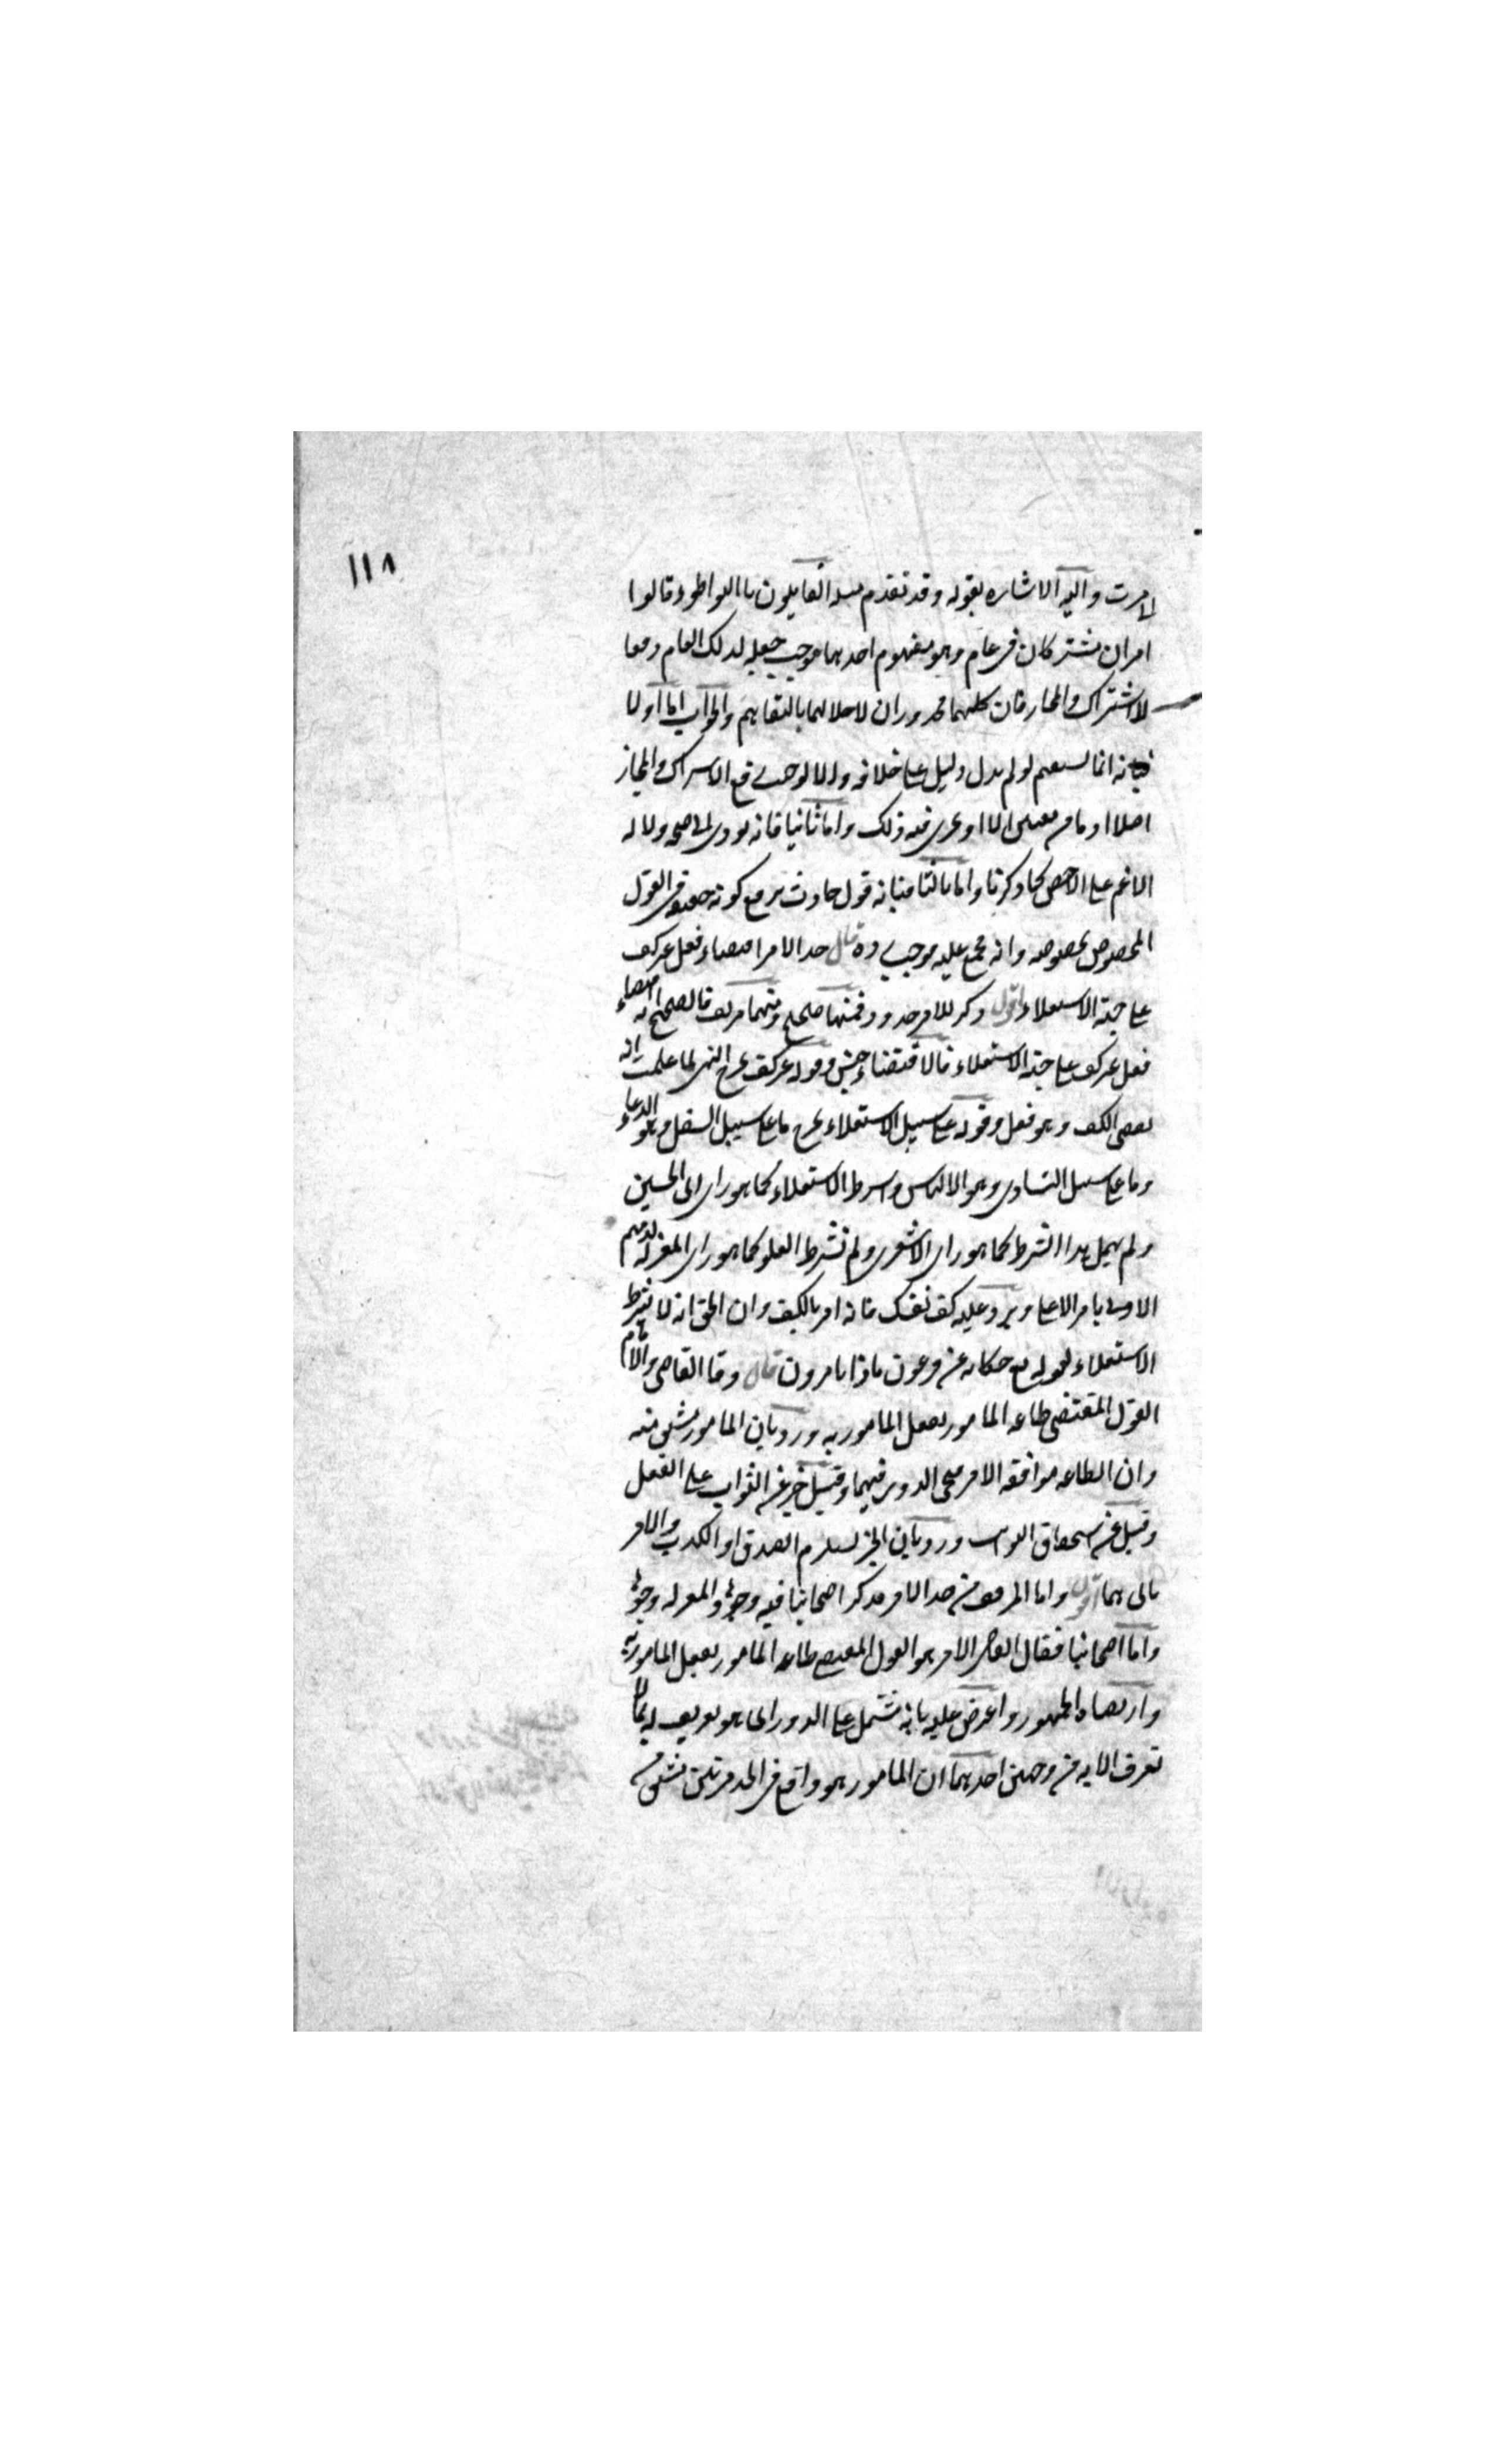 ١١٨
لما مرت واليه الاشاره بقوله وقد تقدم مثله القايلون بالتواطوء قالوا
امران مشتركان فى عام وهو مفهوم احدهما فوجب جعله لذلك العام دفعا
للاشتراك والمجاز فان كليهما محذوران لاخلالهما بالتفاهم والجواب اما اولا
فبانه انما يستقيم لو لم يدل دليل على خلافه والا لوجب رفع الاشتراك والمجاز
اصلا اذ ما من معنيين الا او يجرى فيه ذلك واما ثانيا فانه يودى الى صحة دلاله
الاعم على الاخص كما ذكرنا واما ثالثا فبانه قول حادث يرفع كونه حقيقه فى القول
المخصوص بخصوصه وانه مجمع عليه فوجب رده قال حد الامر اقتضاء فعل غير كف
على جهة الاستعلاء اقول ذكر للامر حدود فمنها صحيح ومنها مزيف فالصحيح انه اقتضاء
فعل غير كف على جهة الاستعلاء فالاقتضاء جنس وقوله غير كف يخرج النهى لما علمت انه
يقتضى الكف وهو فعل وقوله على سبيل الاستعلاء يخرج ما على سبيل التسفل وهو الدعاء
وما على سبيل التساوى وهو الالتماس واشترط الاستعلاء كما هو راى ابى الحسين
ولم يهمل هذا الشرط كما هو راى الاشعرى ولم نشرط العلو كما هو راى المعتزله لذمهم
الادنى يامر الاعلى ويرد عليه كف نفسك فانه امر بالكف وان الحق انه لا يشترط
الاستعلاء لقوله تع حكايه عن فرعون ماذا تامرون قال وقا القاضى والامام
القول المقتضى طاعه المامور بفعل المامور به ورد بان المامور مشتق منه
وان الطاعه موافقه الامر فيجى الدور فيهما وقيل خبر عن الثواب على الفعل
وقيل عن استحقاق الثواب ورد بان الخبر يستلزم الصدق او الكذب والامر
يابى هما اقول واما المزيف من حد الامر فذكر اصحابنا فيه وجوها والمعتزله وجوها
واما اصحابنا فقال القاضى الامر هو القول المقتضى طاعه المامور بفعل المامور به
وارتضاه الجمهور واعترض عليه بانه مشتمل على الدور اى ما هو تعريف له بما لا
تعرف الا به من وجهين احدهما ان المامور هو واقع فى الحد مرتين مشتق من